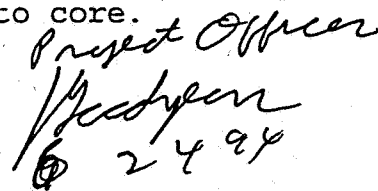 to core.
Project Officer
6 24 94